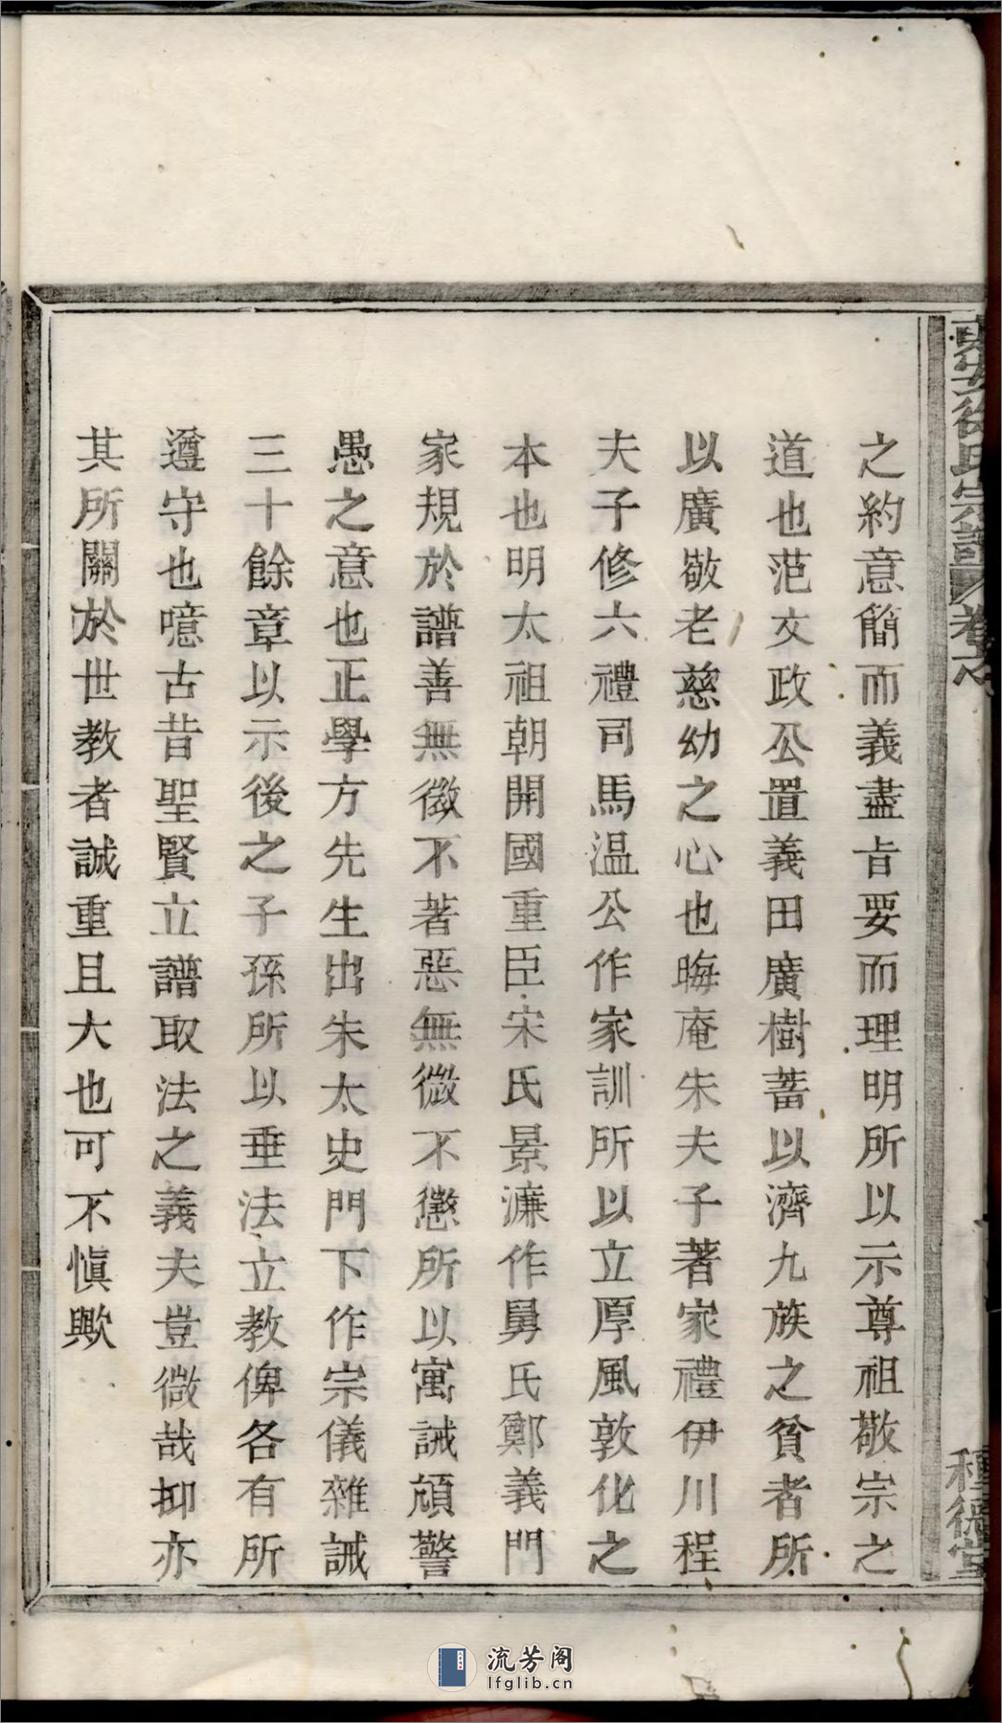 之約意簡而義盡㫖要而理明所以示尊祖敬宗之
道也范文政公置義田廣樹蓄以濟九族之貧者所
以廣敬老慈幼之心也晦庵朱夫子著家禮伊川程
夫子修六禮司馬溫公作家訓所以立厚風敦化之
本也明太祖朝開國重臣宋氏景濂作舅氏鄭義門
家規於譜善無徵不著惡無微不懲所以寓誡頑警
愚之意也正學方先生出朱太史門下作宗儀雜誡
三十餘章以示後之子孫所以垂法立教俾各有所
遵守也噫古昔聖賢立譜取法之義夫豈微哉抑亦
其所關於世教者誠重且大也可不慎歟
徐氏宗譜
卷之
種德堂
流芳阁
lfglib.cn